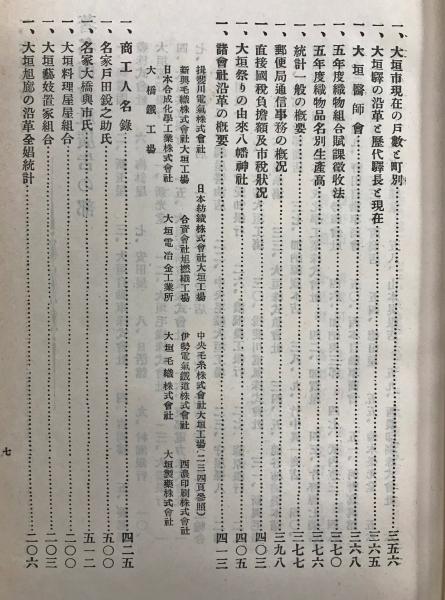 一、大垣市現在の戸數と町別…………三五六
一、大垣驛の沿革と歷代驛長と現在…………三六五
一、大垣醫師會…………三六八
一、五年度織物組合賦課徵收法…………三七〇
一、五年度織物品名別生產高…………三七六
一、統計一般の概要…………三七七
一、郵便局通信事務の概況…………三九八
一、直接國稅負擔額及市稅狀況…………四〇三
一、大垣祭りの由來八幡神社…………四〇五
一、諸會社沿革の概要…………四一三
揖斐川電氣株式會社 日本紡績株式會社大垣工場 中央毛糸株式會社大垣工場(二三四頁參照)
新興毛織株式會社大垣工場 合資會社旭撚織工場 伊勢電氣鐵道株式會社 西濃印刷株式會社
日本合成化學工業株式會社 大垣電冶金工業所 大垣毛織株式會社 大垣製藥株式會社
大橋鐵工場
一、商工人名錄…………四二五
一、名家戸田銳之助氏…………五〇〇
一、名家大橋與市氏…………五一二
一、大垣料理屋組合…………二〇〇
一、大垣藝妓置家組合…………二〇三
一、大垣旭廓の沿革全娼統計…………二〇六
七